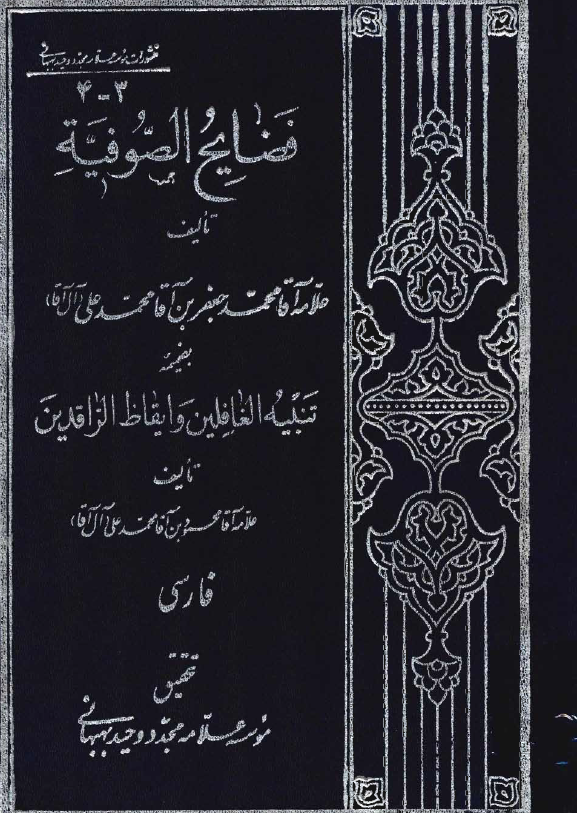 منشورات مؤسسه علامه مجدد وحید بهبهانی
۳-۴
فَضَایِحُ الصُّوفِیَّةِ
تألیف
علّامه آقا محمّد جعفر بن آقا محمّد علی (آل آقا)
بضمیمه
تَنبِیهُ الغٰافِلِین وَ ایقٰاظُ الرّاقِدِینَ
تألیف
علّامه آقا محمود بن آقا محمد علی (آل آقا)
فارسی
تحقیق
مؤسسه علّامه مجدّد وحید بهبهانی